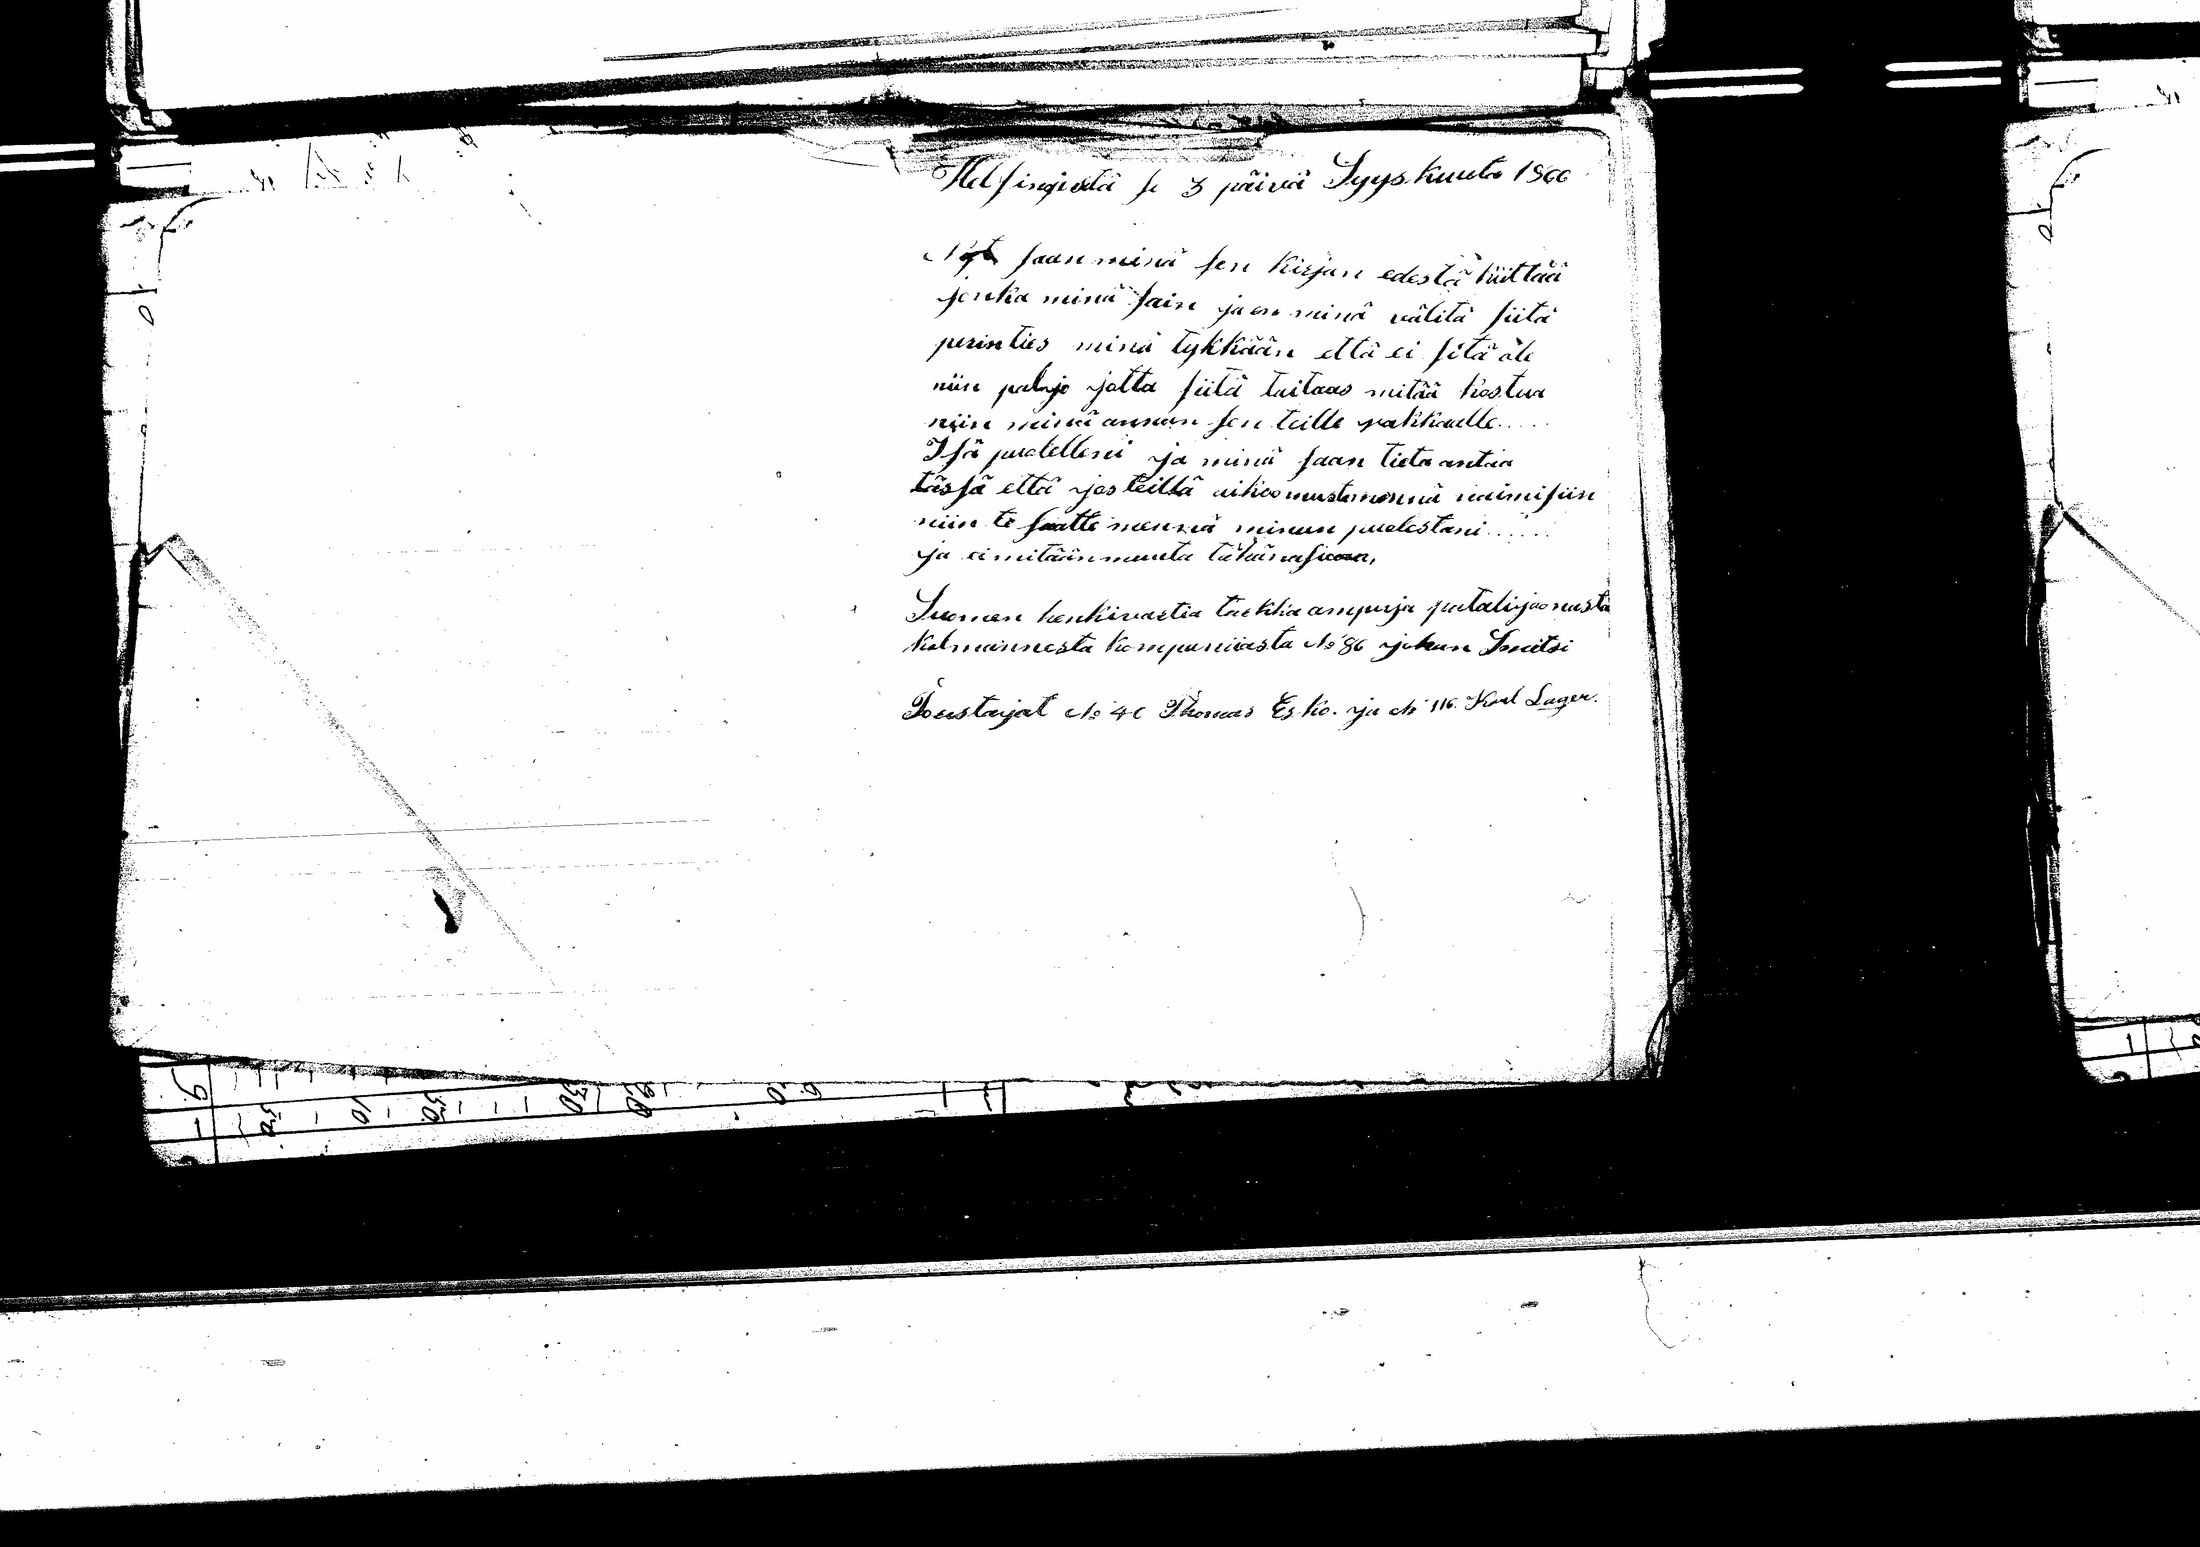 Helsingistä se 3 päivä Syyskuuta 1866
Nyt saan minä sen kirjan edestä kiittää
jonka minä sain ja en minä välitä siitä
perinties minä tykkään että ei sitä ole
niin paljo jotta siitä taitaas mitää kostua
niin minä annan sen teille rakkaalle.....
Isä puolelleni ja minä saan tieta antaa
tässä että jos teillä aikoomusta mennä naimisiin
niin te saatte mennä minun puolestani......
ja ei mitään muuta tähän
Suomen henkivartia tarkka ampuja patalijoonasta
kolmannesta komppaniiasta No 86 Johan Smitsi
Toistajat No 40 Thomas Esko. ja No 116. Karl Lager.